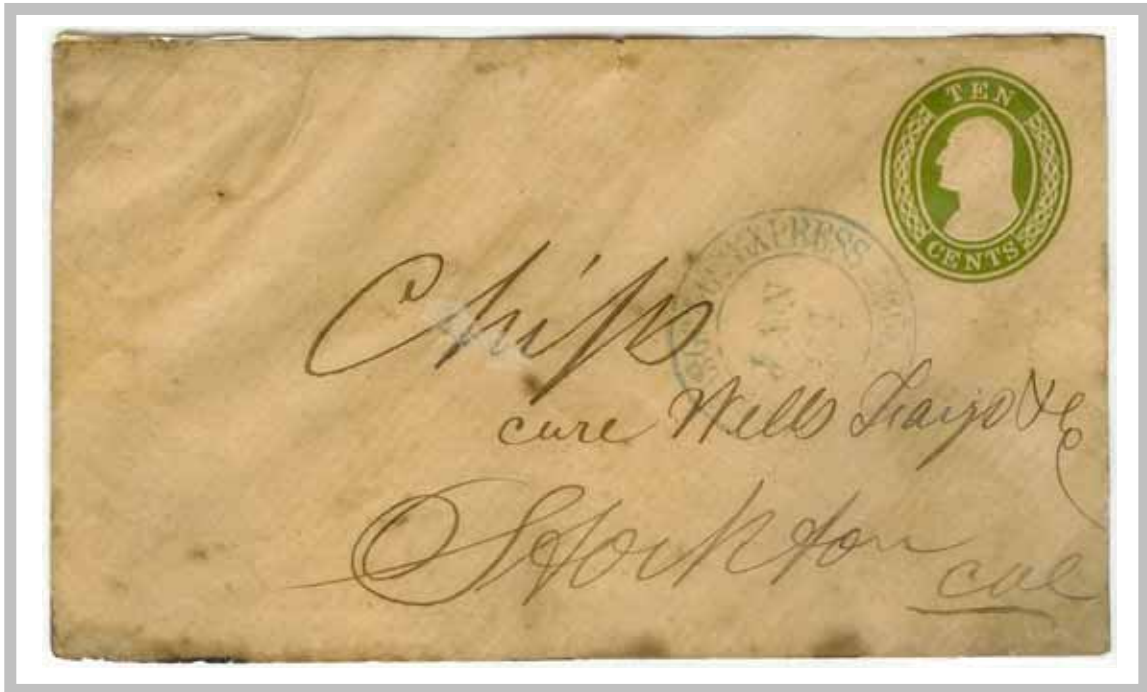 TEN
CENTS
EXPRESS
JAN
Chips
care Wells Fargo & Co
Stockton
cal